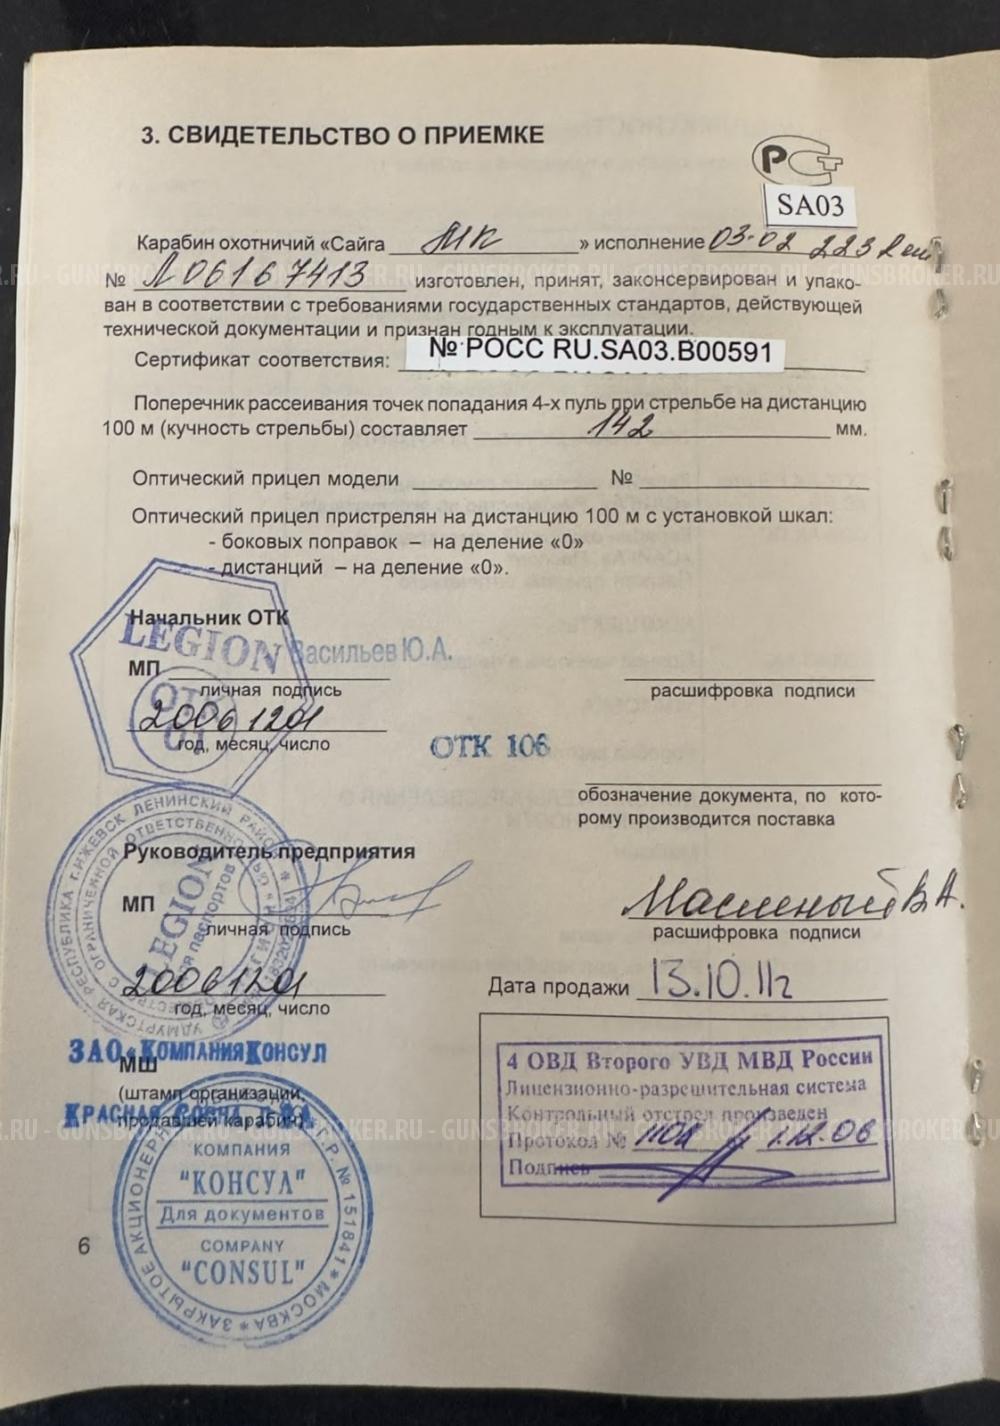 3. СВИДЕТЕЛЬСТВО О ПРИЕМКЕ
РСТ
SA03
Карабин охотничий «Сайга МК » исполнение 03-02 223 Rem
№ Л06167413 изготовлен, принят, законсервирован и упако-
ван в соответствии с требованиями государственных стандартов, действующей
технической документации и признан годным к эксплуатации.
Сертификат соответствия: № РОСС RU.SA03.B00591
Поперечник рассеивания точек попадания 4-х пуль при стрельбе на дистанцию
100 м (кучность стрельбы) составляет 142 мм.
Оптический прицел модели №
Оптический прицел пристрелян на дистанцию 100 м с установкой шкал:
- боковых поправок – на деление «0»
- дистанций – на деление «0».
Начальник ОТК
LEGION
Васильев Ю.А.
МП
личная подпись
расшифровка подписи
ОТК
01
20061201
год, месяц, число
ОТК 106
обозначение документа, по кото-
рому производится поставка
Руководитель предприятия
МП
личная подпись
Масленый В.А.
расшифровка подписи
УДМУРТСКАЯ РЕСПУБЛИКА Г.ИЖЕВСК ЛЕНИНСКИЙ РАЙОН
ОГРАНИЧЕННОЙ ОТВЕТСТВЕННОСТЬЮ
LEGION
паспортов
20061201
год, месяц, число
Дата продажи 13.10.11г
ЗАО «КОМПАНИЯ КОНСУЛ
МШ
(штамп организации,
КРАСНАЯ СОСНА
продавшей карабин)
ЗАКРЫТОЕ АКЦИОНЕРНОЕ
Г.Р. № 151841 * МОСКВА *
КОМПАНИЯ
"КОНСУЛ"
Для документов
COMPANY
"CONSUL"
4 ОВД Второго УВД МВД России
Лицензионно-разрешительная система
Контрольный отстрел произведен
Протокол № 1102 1.12.06
Подпись
6
GUNSBROKER.RU - GUNSBROKER.RU - GUNSBROKER.RU - GUNSBROKER.RU
GUNSBROKER.RU - GUNSBROKER.RU - GUNSBROKER.RU - GUNSBROKER.RU